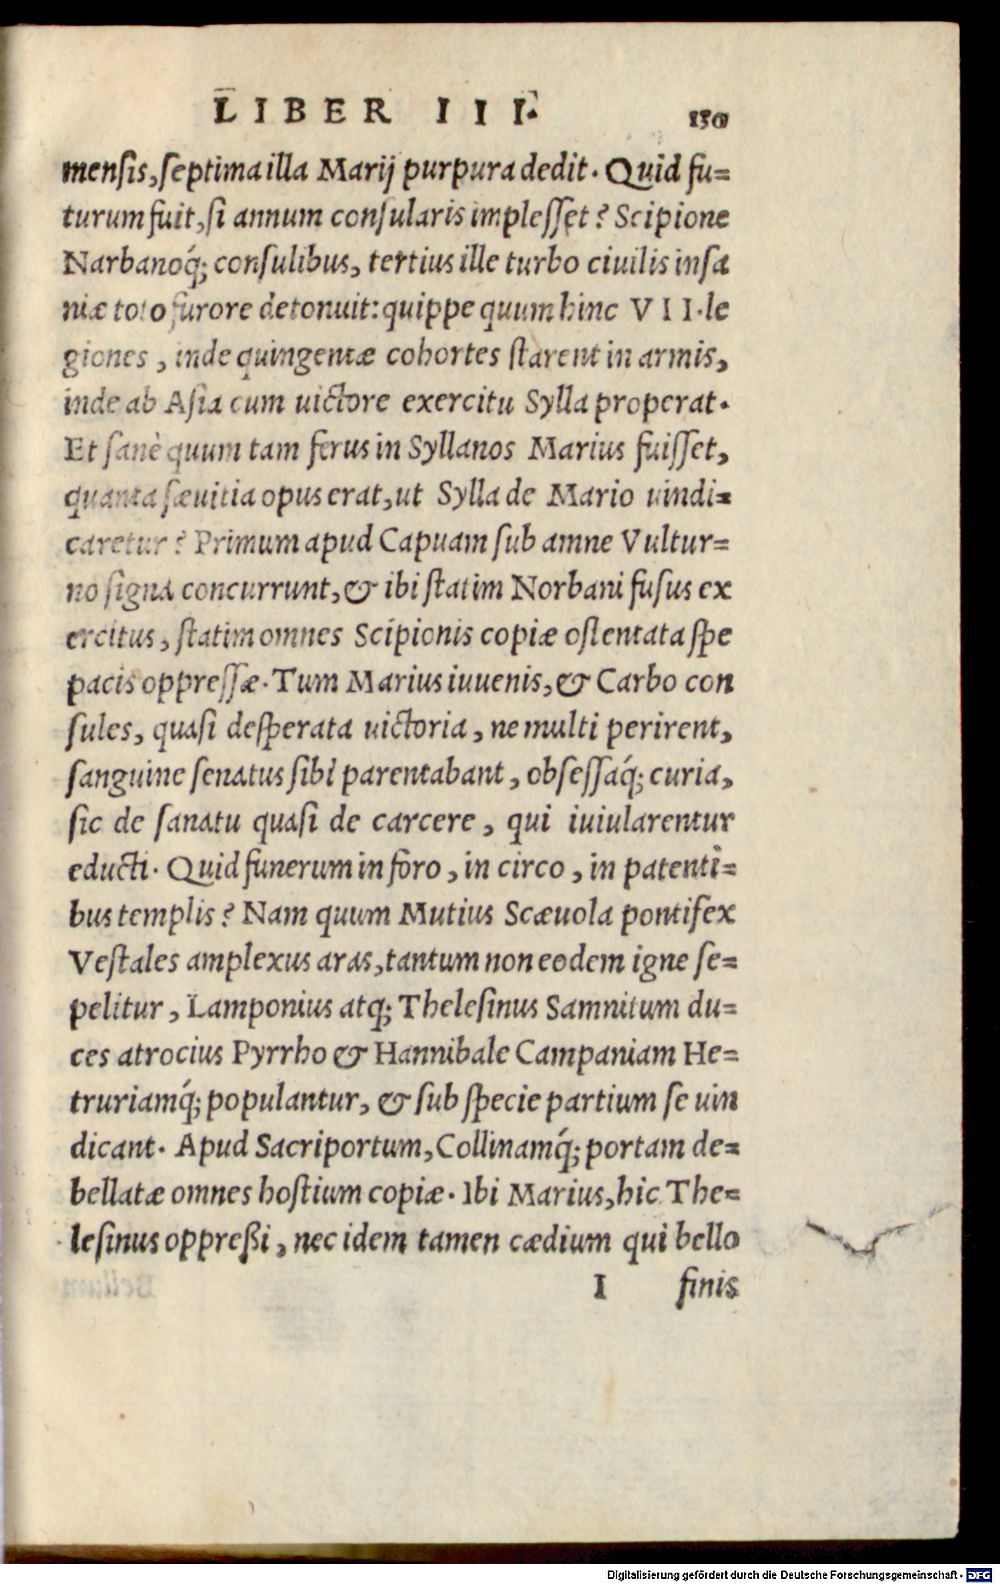 LIBER III.
mensis, septima illa Marij purpura dedit. Quid fu=
turum fuit, si annum consularis implesset? Scipione
Narbanoq́; consulibus, tertius ille turbo ciuilis insa
niæ toto furore detonuit: quippe quum hinc VII. le
giones, inde quingentæ cohortes starent in armis,
inde ab Asia cum uictore exercitu Sylla properat.
Et sanè quum tam ferus in Syllanos Marius fuisset,
quanta sæuitia opus erat, ut Sylla de Mario uindi=
caretur? Primum apud Capuam sub amne Vultur=
no signa concurrunt, & ibi statim Norbani fusus ex
ercitus, statim omnes Scipionis copiæ ostentata spe
pacis oppressæ. Tum Marius iuuenis, & Carbo con
sules, quasi desperata uictoria, ne multi perirent,
sanguine senatus sibi parentabant, obsessaq́; curia,
sic de sanatu quasi de carcere, qui iuiularentur
educti. Quid funerum in foro, in circo, in patenti=
bus templis? Nam quum Mutius Scæuola pontifex
Vestales amplexus aras, tantum non eodem igne se=
pelitur, Lamponius atq; Thelesinus Samnitum du=
ces atrocius Pyrrho & Hannibale Campaniam He=
truriamq́; populantur, & sub specie partium se uin
dicant. Apud Sacriportum, Collinamq́; portam de=
bellatæ omnes hostium copiæ. Ibi Marius, hic The=
lesinus oppreßi, nec idem tamen cædium qui bello
I finis
Digitalisierung gefördert durch die Deutsche Forschungsgemeinschaft - DFG